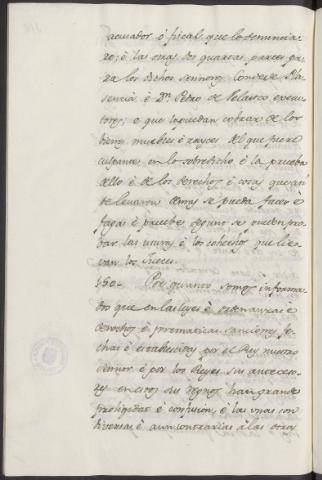 acusador ó fiscal que lo denuncia-
re; é las otras dos quartas partes pa-
ra los dichos señores Conde de Pla-
sencia é Dn. Pedro de Velasco, execu-
tores; e que lo puedan cobrar de los
bienes muebles é rayces del que fuere
culpante en lo sobredicho, é la prueba
dello é de los derechos é cosas que así
de levaren demas se pueda facer é
faga é pruebe segund se pueden pro-
bar las usuras é los cohechos que lie-
van los Jueces.
Por quanto somos informa-
dos que en las leyes é ordenanzas é
derechos é prematicas sanciones fe-
chas é establecidas por el Rey nuestro
Señor é por los Reyes sus anteceso-
res en estos sus Regnos han grande
prolixidat é confusion, é las unas son
diversas é aun contrarias á las otras